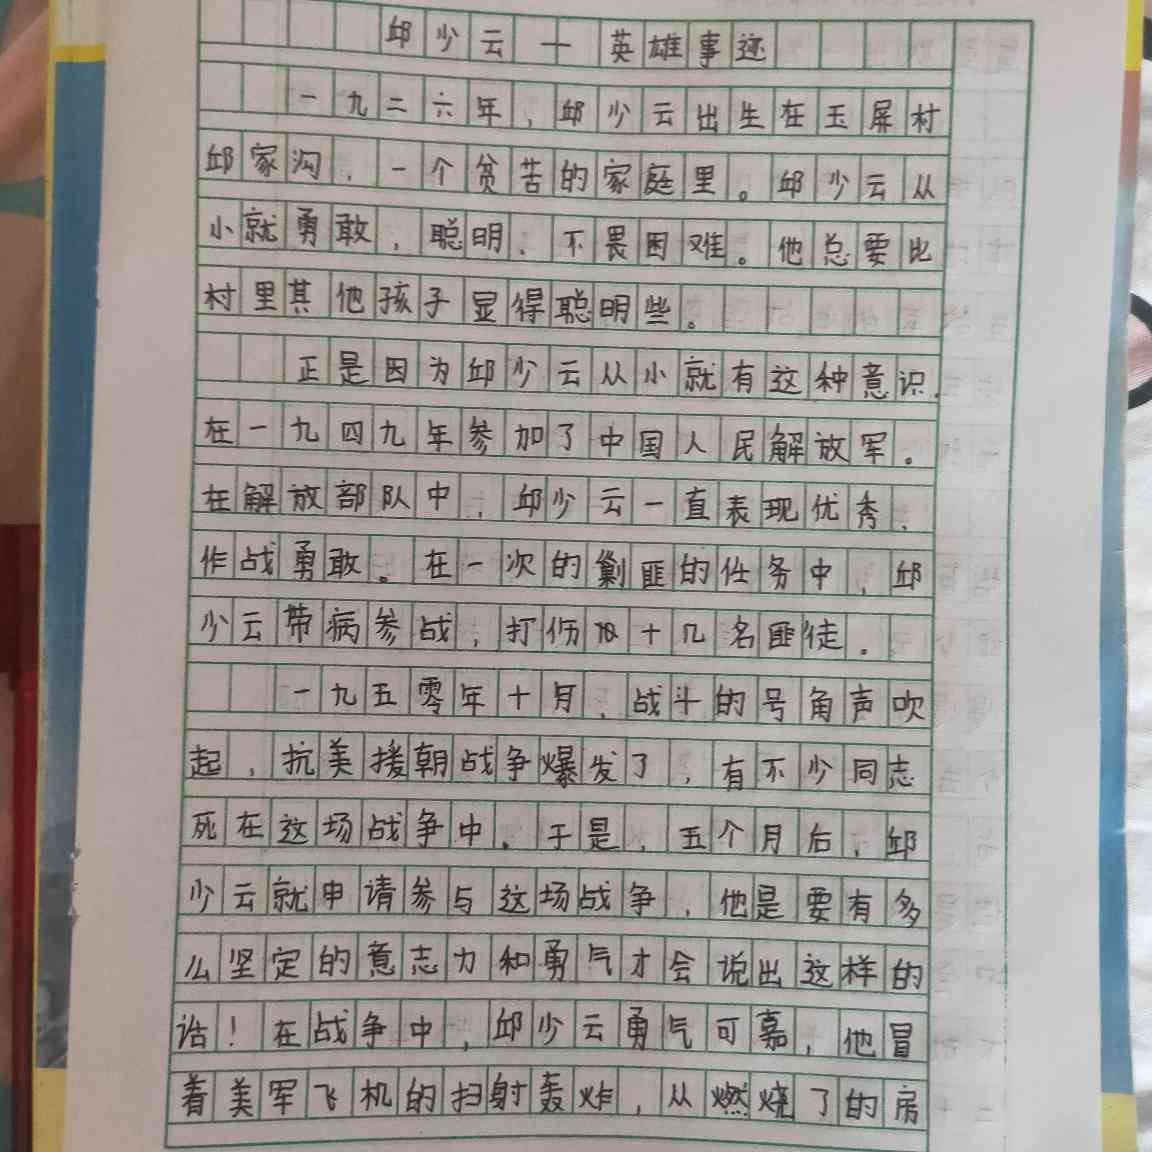 邱少云—英雄事迹
一九二六年，邱少云出生在玉屏村
邱家沟，一个贫苦的家庭里。邱少云从
小就勇敢，聪明，不畏困难。他总要比
村里其他孩子显得聪明些。
正是因为邱少云从小就有这种意识，
在一九四九年参加了中国人民解放军。
在解放部队中，邱少云一直表现优秀，
作战勇敢。在一次的剿匪的任务中，邱
少云带病参战，打伤十几名匪徒。
一九五零年十月，战斗的号角声吹
起，抗美援朝战争爆发了，有不少同志
死在这场战争中。于是，五个月后，邱
少云就申请参与这场战争，他是要有多
么坚定的意志力和勇气才会说出这样的
话！在战争中，邱少云勇气可嘉，他冒
着美军飞机的扫射轰炸，从燃烧了的房